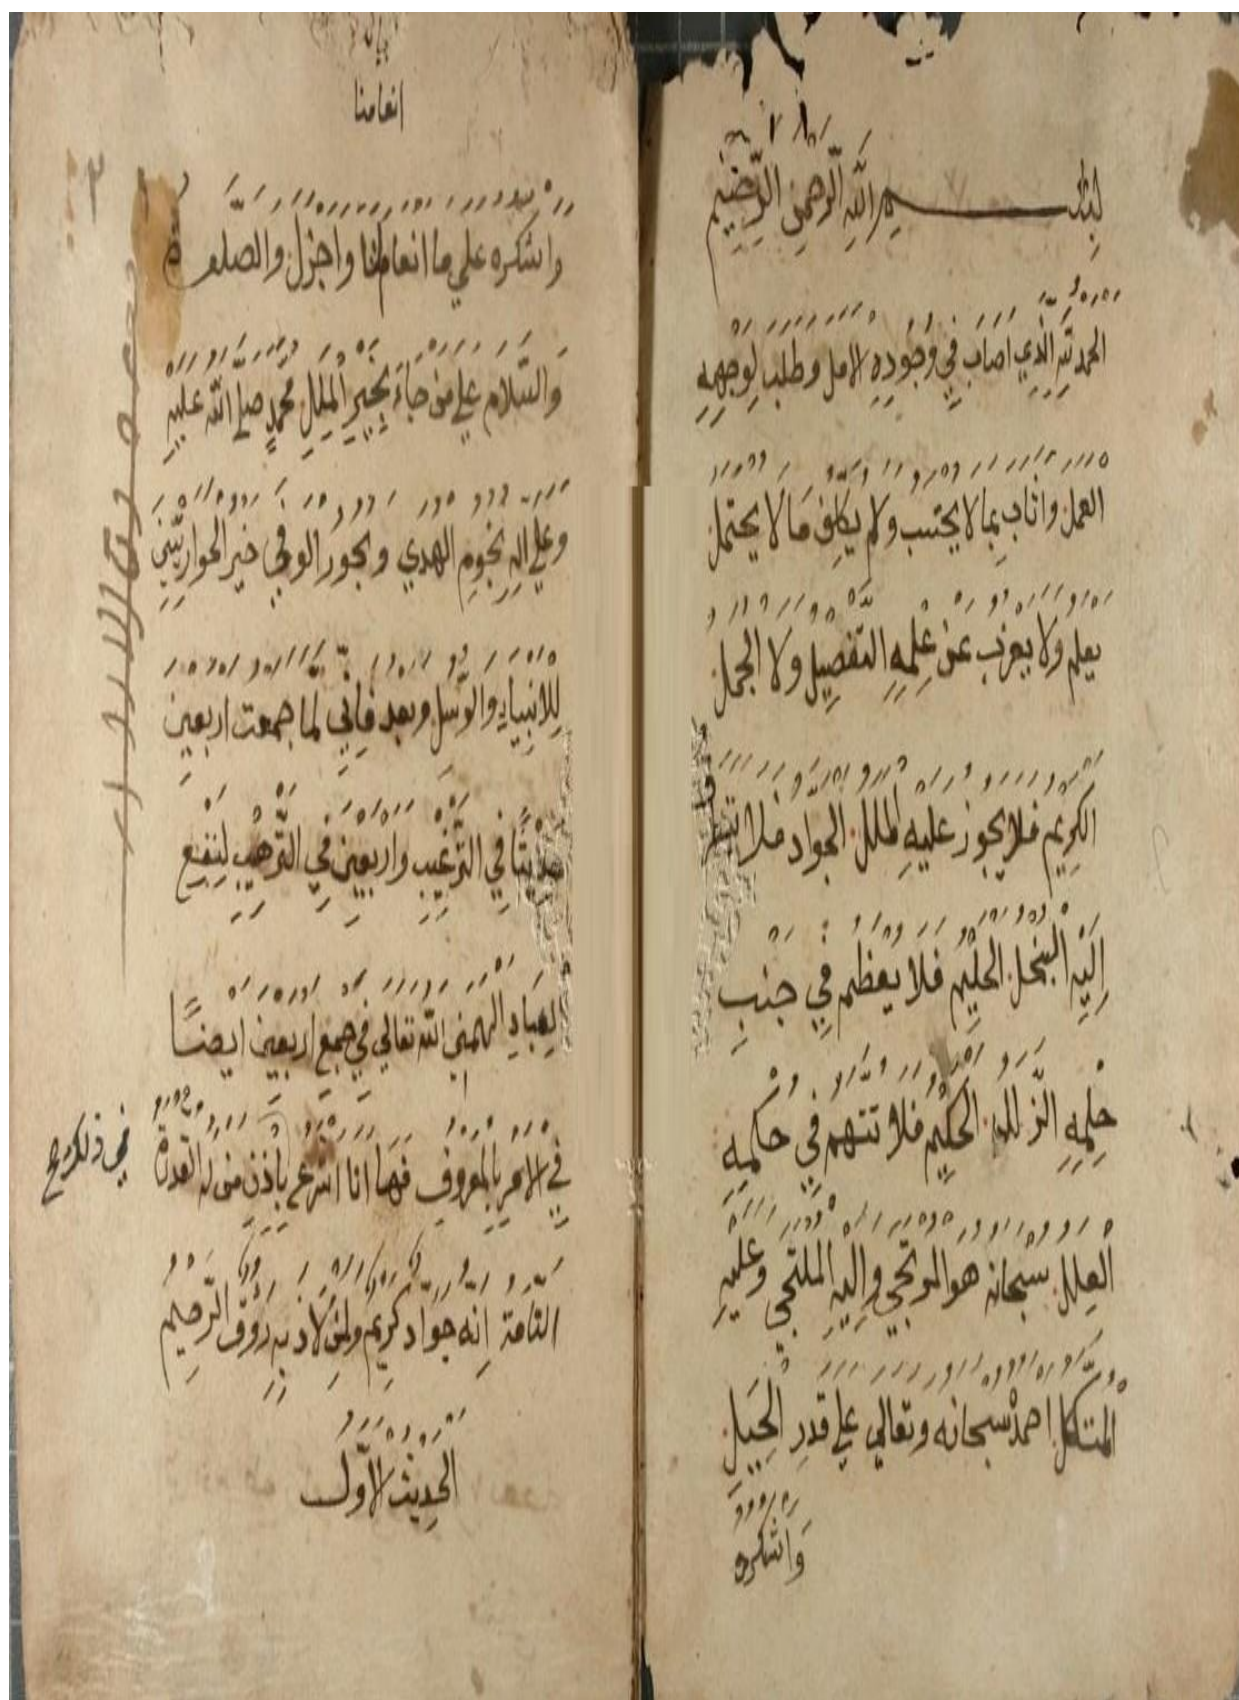 بسم الله الرحمن الرحيم
الحمد لله الذي اصاب في وجوده الامل وطلب لوجهه
العمل واثاب بما لا يحتسب ولم يكلف ما لا يحتمل
يعلم ولا يعزب عن علمه التفصيل ولا الجمل
الكريم فلا يجوز عليه الملل الجواد فلا
اليه البخل الحليم فلا يعظم في جنب
حلمه الزلل الحكيم فلا تتهم في حكمه
العلل سبحانه هو المرتجي واليه الملتجي وعليه
المتكل احمده سبحانه وتعالي علي قدر الجبل
واشكره
انعامنا
واشكره علي ما انعامنا واجزل والصلوة
والسلام علي من جاء بخير الملل محمد صلي الله عليه
وعلي اله نجوم الهدي وبحور الوفي خير الحواريين
للانبياء والرسل وبعد فاني لما جمعت اربعين
حديثا في الترغيب واربعين في الترهيب لينفع
العباد الهمني الله تعالي في جمع اربعين ايضا
في الامر بالمعروف فها انا اشرع باذن من له القدرة
في ذلك صح
التامة انه جواد كريم ولمن لاذ به رؤوف الرحيم
الحديث الاول